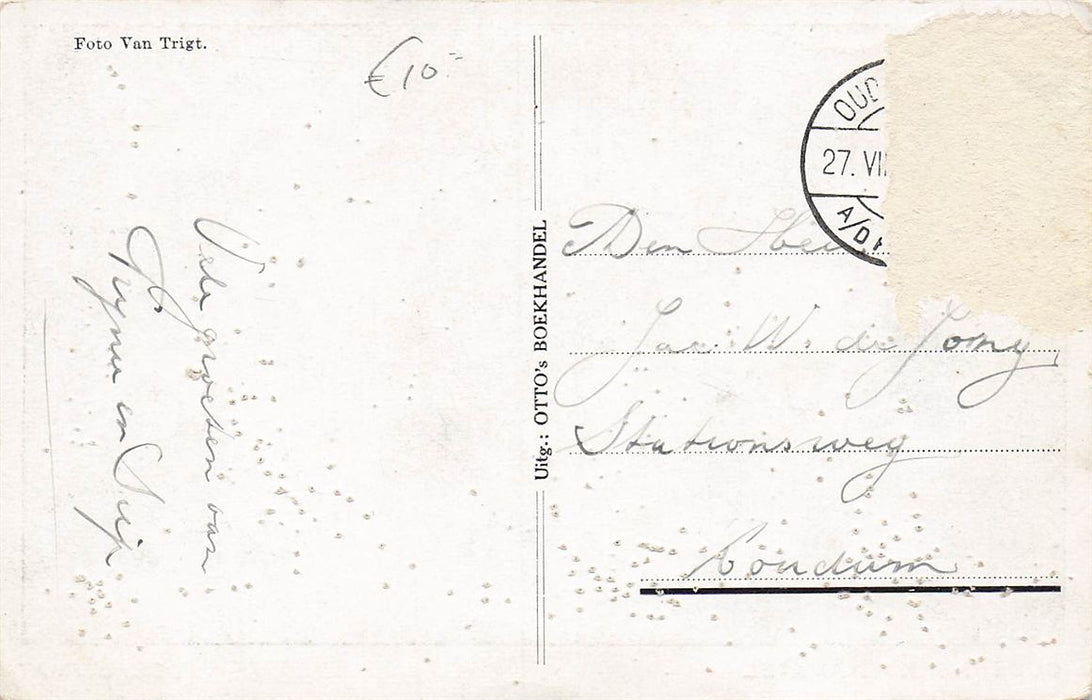 Foto Van Trigt.
€ 10-
Vele groeten van
Tryn en Siep
Uitg.: OTTO's BOEKHANDEL
OUD
27. VI
A/D
Den Heer
Jac. W. de Jong,
Stationsweg
Koudum